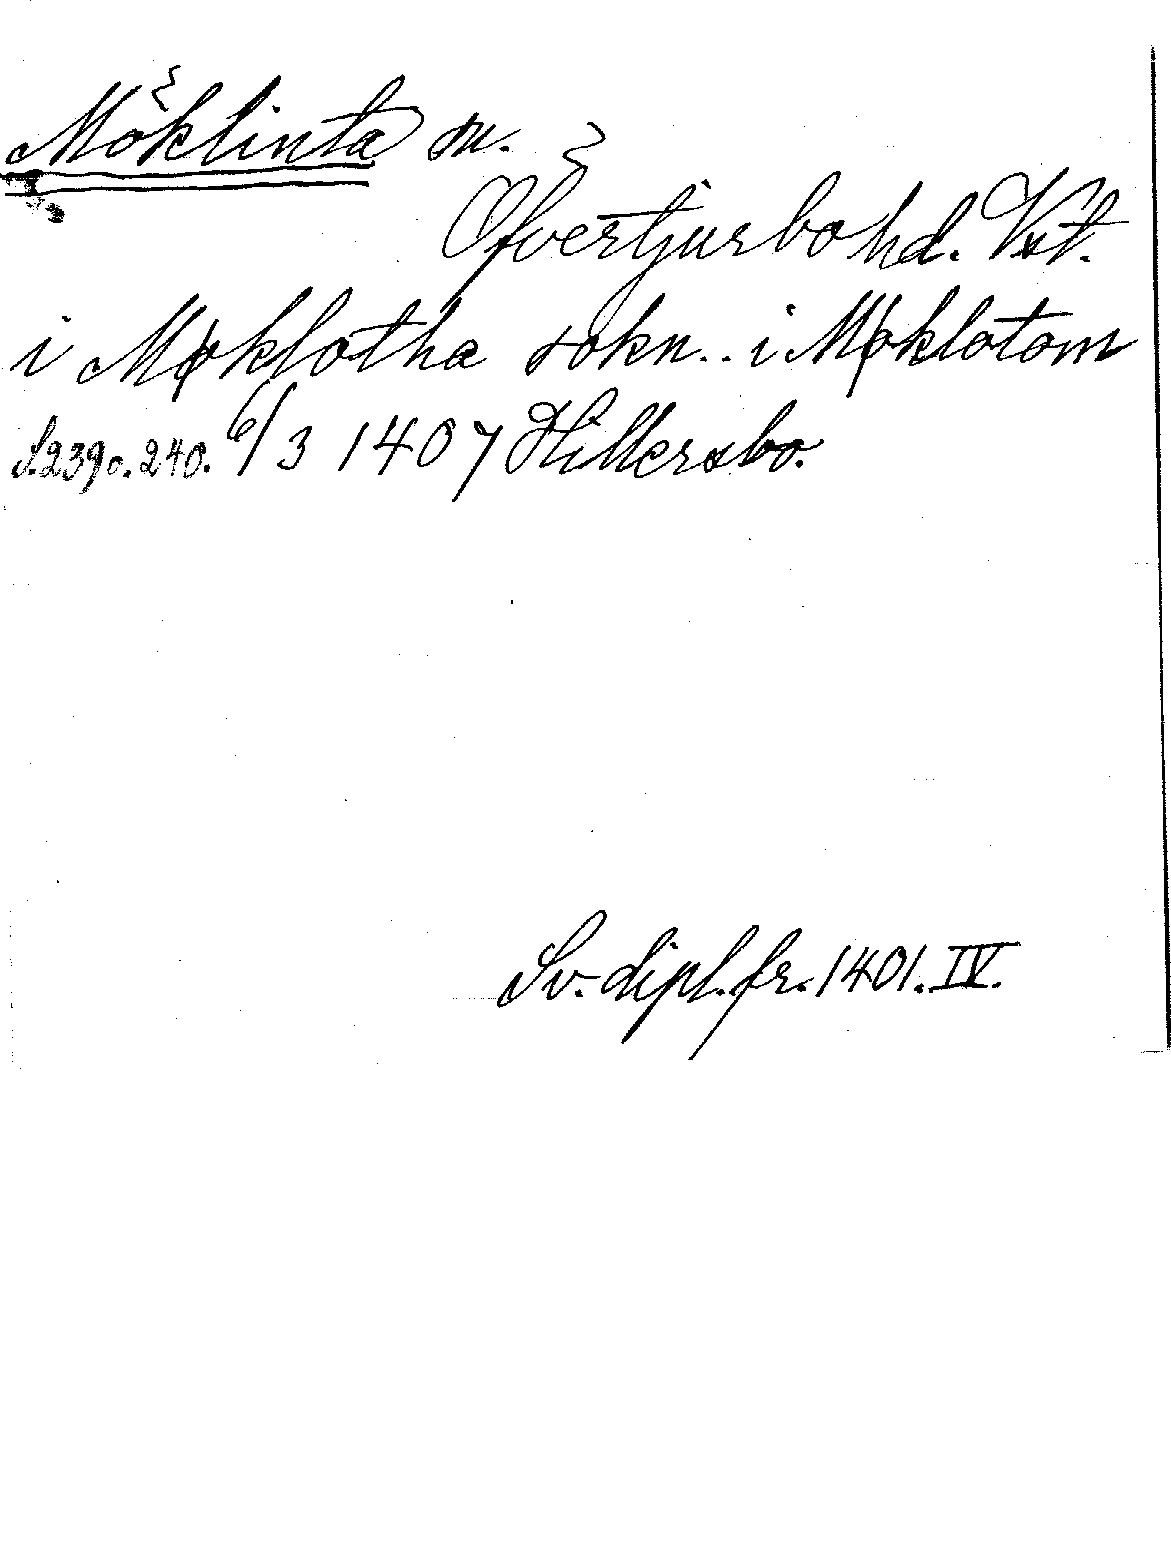 Möklinta sn.
Öfvertjurbo hd. Vst.
i Møklotha sokn.. i Møklotom
S. 239 o. 240. 6/3 1407 Hillersbo.
Sv. dipl. fr. 1401. IV.